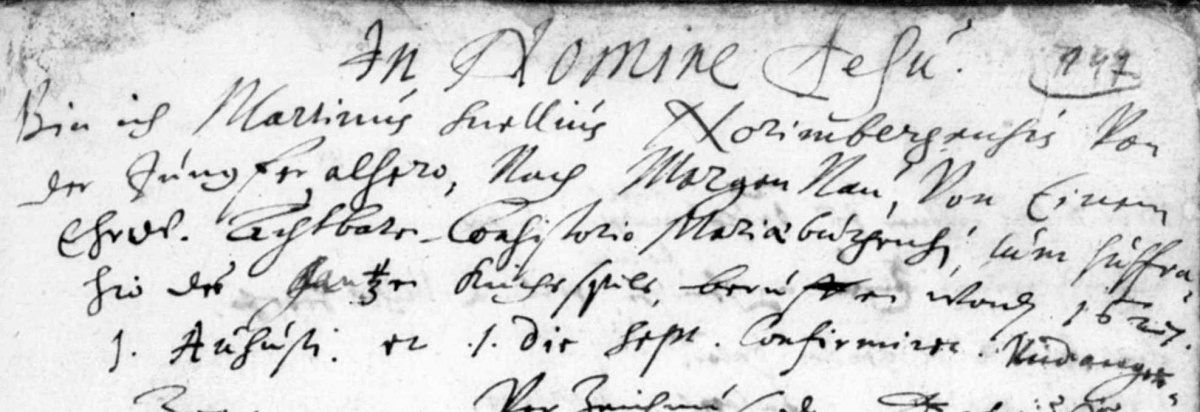 In Nomine Jesu. 147
Bin ich Martinus Snellius Norimbergensis Von
der Jungfer alhero, Nach Mergen Nau, Von Einem
Ehrw. Achtbare Consistorio Mariæburgensi, cum suffra-
gio des gantzen Kirchspils, beruffen word 1627.
1. Augusti. et 1. Die Sept. Confirmiret
Verzeichnus